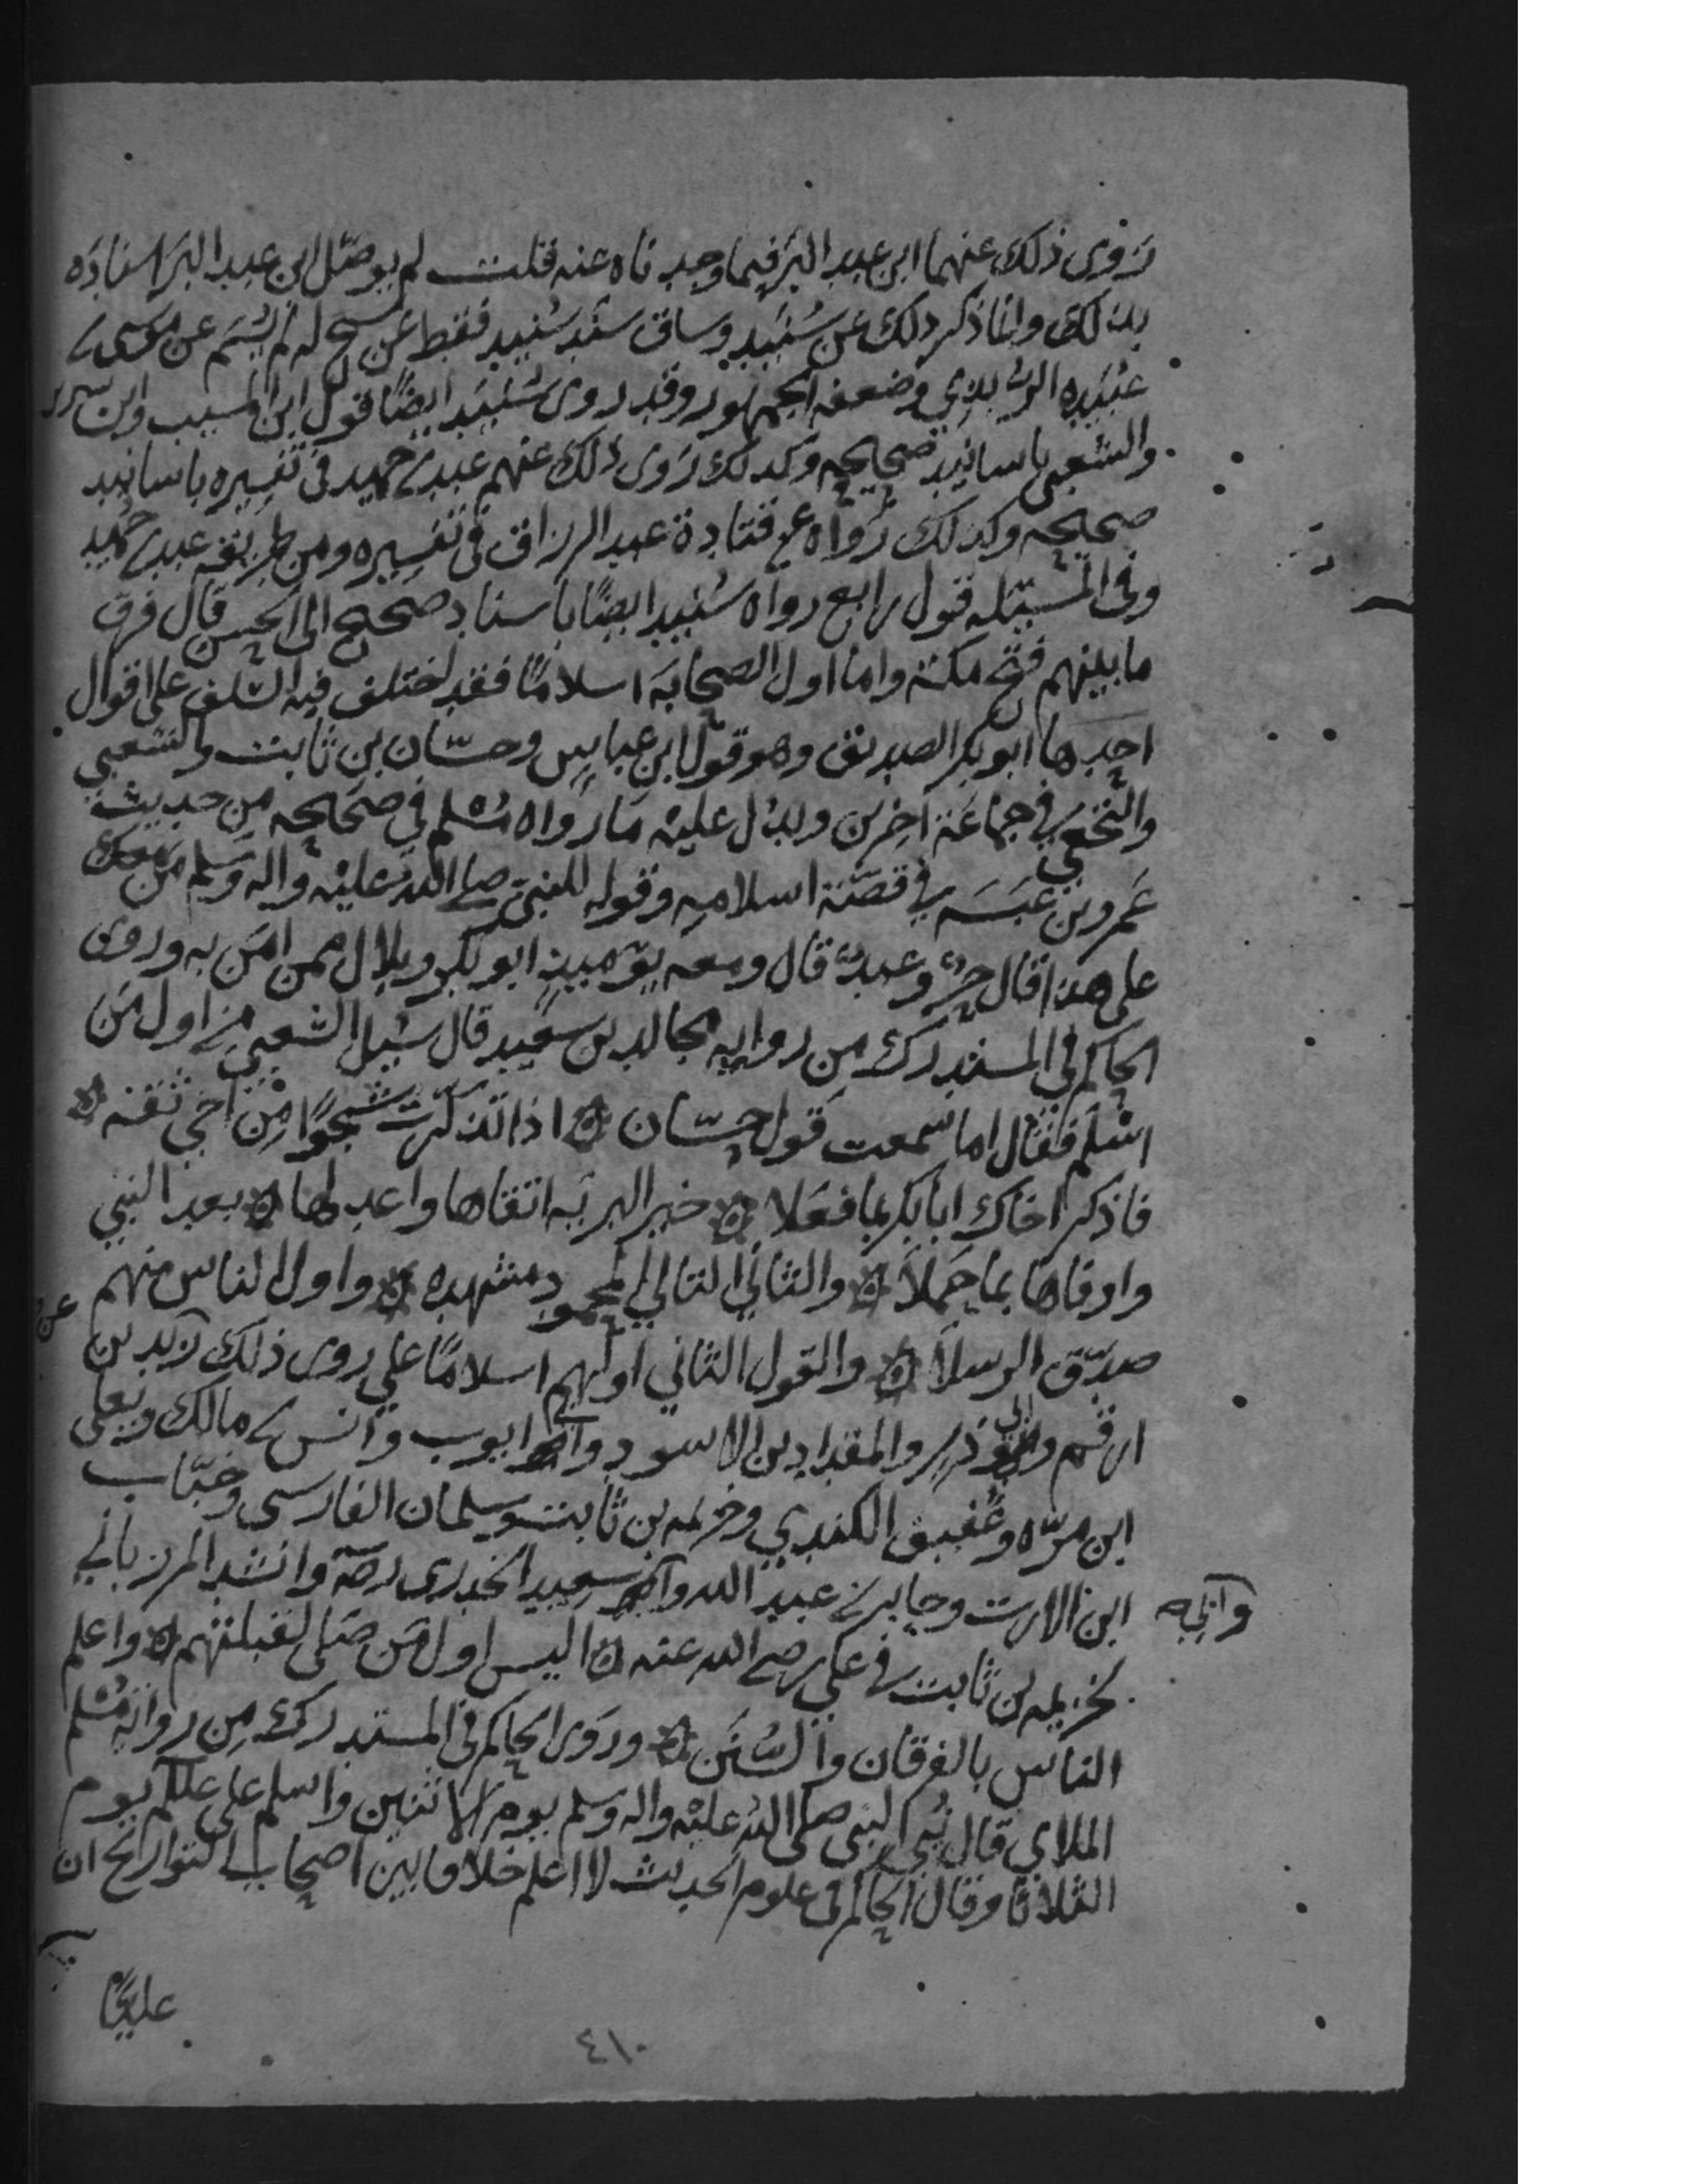 رَوى ذلك عنهما ابن عبد البرّ فيما وجدناه عنه قلت لم يوصّل ابن عبد البرّ اسنادَه
بذلك وانما ذكر ذلك عن سُنَيد وساق سَنَد سُنَيد فقط عن شيخ له لم يُسَم عن موسى بن
عُبَيده الرَّبَذي وضعفه الجمهور وقد روى سُنَيد ايضًا قول ابن المسيب وابن سيرين
والشعبي باسانيد صحيحه وكذلك رَوى ذلك عنهم عبد بن حميد في تفسيره باسانيد
صحيحه وكذلك رَواه عن قتادة عبد الرزاق في تفسيره ومن طريقه عبد بن حُميد
وفي المسئله قول رابع رواه سُنَيد ايضًا باسناد صحيح الى الحسن قال فرق
ما بينهم فتح مكة واما اول الصحابة اسلامًا فقد اختلف فيه السّلف على اقوال
احدها ابو بكر الصديق وهو قول ابن عباس وحسّان بن ثابت والشعبي
والنخعي في جماعَة اخرين ويدُل عليْه مَا رَواه مُسْلم في صَحيحه مِن حديث
عَمرو بن عَبَسَه في قصّة اسلامِه وقوله للنبي صلى الله عليْه واله وَسلم مَن مَعك
على هذا قال حرٌّ وعبدٌ قال ومعه يَوْمَيذٍ ابو بكر وبلال ممن امَن به وروى
الحاكم في المستدرك مِن روايه مجالد بن سعيد قال سُئل الشعبي مَن اول مَن
اسْلم فقال اما سمعت قول حسّان ه اذا تذكّرت شجوًا مِن اخي ثقة ه
فاذكر اخاك ابا بكر بما فعَلا ه خير البريّه اتقاها واعدلها ه بعد النبي
واوفاها بما حَملا ه والثاني التالي المحمود مشهده ه واول الناس منهم
صدّق الرسلا ه والقول الثاني اولهم اسلامًا علي روى ذلك عن زيد بن
ارقم وابي ذر والمقداد بن الاسود وابي ايوب وانس بن مالك ويعلى
ابن مرّه وعُفيف الكندي وخزيمه بن ثابت وسلمان الفارسي وخبّاب
ابن الارت وجابر بن عبد الله وابي سعيد الخدري رضّه وانشد المرزباني
وابي
لخزيمه بن ثابت في علي رضي الله عنه ه اليس اول مَن صَلى لقبلتهم ه واعلم
الناس بالفرقان والسُنَن ه ورَوى الحاكم في المستدرك مِن رواية مُسْلم
الملاي قال نُبي النبي صلى الله عليْه واله وسلم يوم الاثنين واسلم علي علـم يوم
الثلاثا وقال الحاكم في علوم الحديث لا اعلم خلافا بين اصحاب التواريخ ان
عليًّا
٤١٠